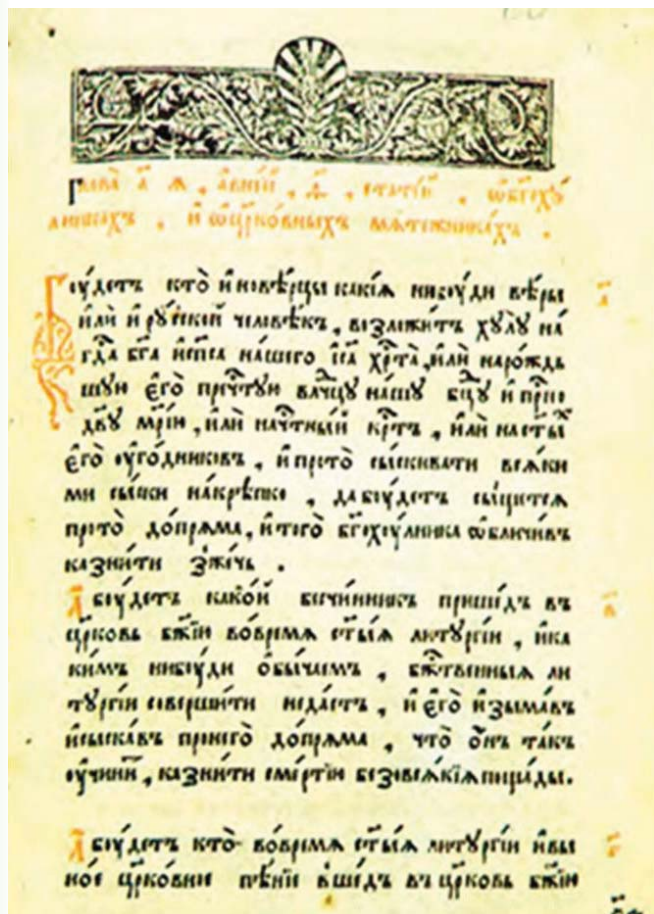 Глава̀ а҃ я, а в ней, ѳ҃, статей, ѡ бг҃оху́
лникахъ, и҆ ѡ цр҃ко́вныхъ мѧтежникахъ.
Бꙋ́детъ кто̀ и҆нове́рцы какі́ѧ нибꙋди ве́ры
и҆лѝ и҆ рꙋ́ской человѣ́къ, возложи́тъ хꙋлꙋ̀ на́
гдⷭ҇а бг҃а и҆ сп҃са на́шего і҆с҃а хрⷭ҇та̀, и҆лѝ нарѡ́ждь
шꙋю є҆го̀ прчⷭ҇тꙋю влⷣчцꙋ на́шꙋ бцⷣꙋ и҆ прⷭ҇но
дв҃ꙋ мр҃і́ю, и҆лѝ на чⷭ҇тны́й крⷭ҇тъ, и҆лѝ на ст҃ы́хъ
є҆го̀ ᲂу҆го́дниковъ, и҆ прото̀ сы́скивати всѧ́ки
ми сы́ски на́крѣпко, да бꙋ́детъ сы́щетсѧ
прото̀ до́прѧма, и҆ того̀ бг҃охꙋ́лника ѡ҆бличи́въ
казни́ти зже́чь.
А҆ бꙋ́детъ како́й безчи́нникъ прише́дъ въ
цр҃ковь бж҃ію во́времѧ ст҃ы́ѧ литꙋргі́и, и҆ ка
ки́мъ нибꙋди ѻ҆бы́чаемъ, бжⷭ҇твенныѧ ли
тꙋргі́и соверши́ти не да́стъ, и҆ є҆го̀ и҆зыма́въ
и҆ сыска́въ про него̀ до́прѧма, что̀ ѻ҆́нъ та́къ
ᲂу҆чини́тъ, казни́ти сме́ртію безовсѧ́кіѧ поща́ды.
А҆ бꙋ́детъ кто̀ во́времѧ ст҃ы́ѧ литꙋргі́и и҆ в ы
но́е цр҃ко́вное пѣ́ніе вше́дъ въ цр҃ковь бж҃ію